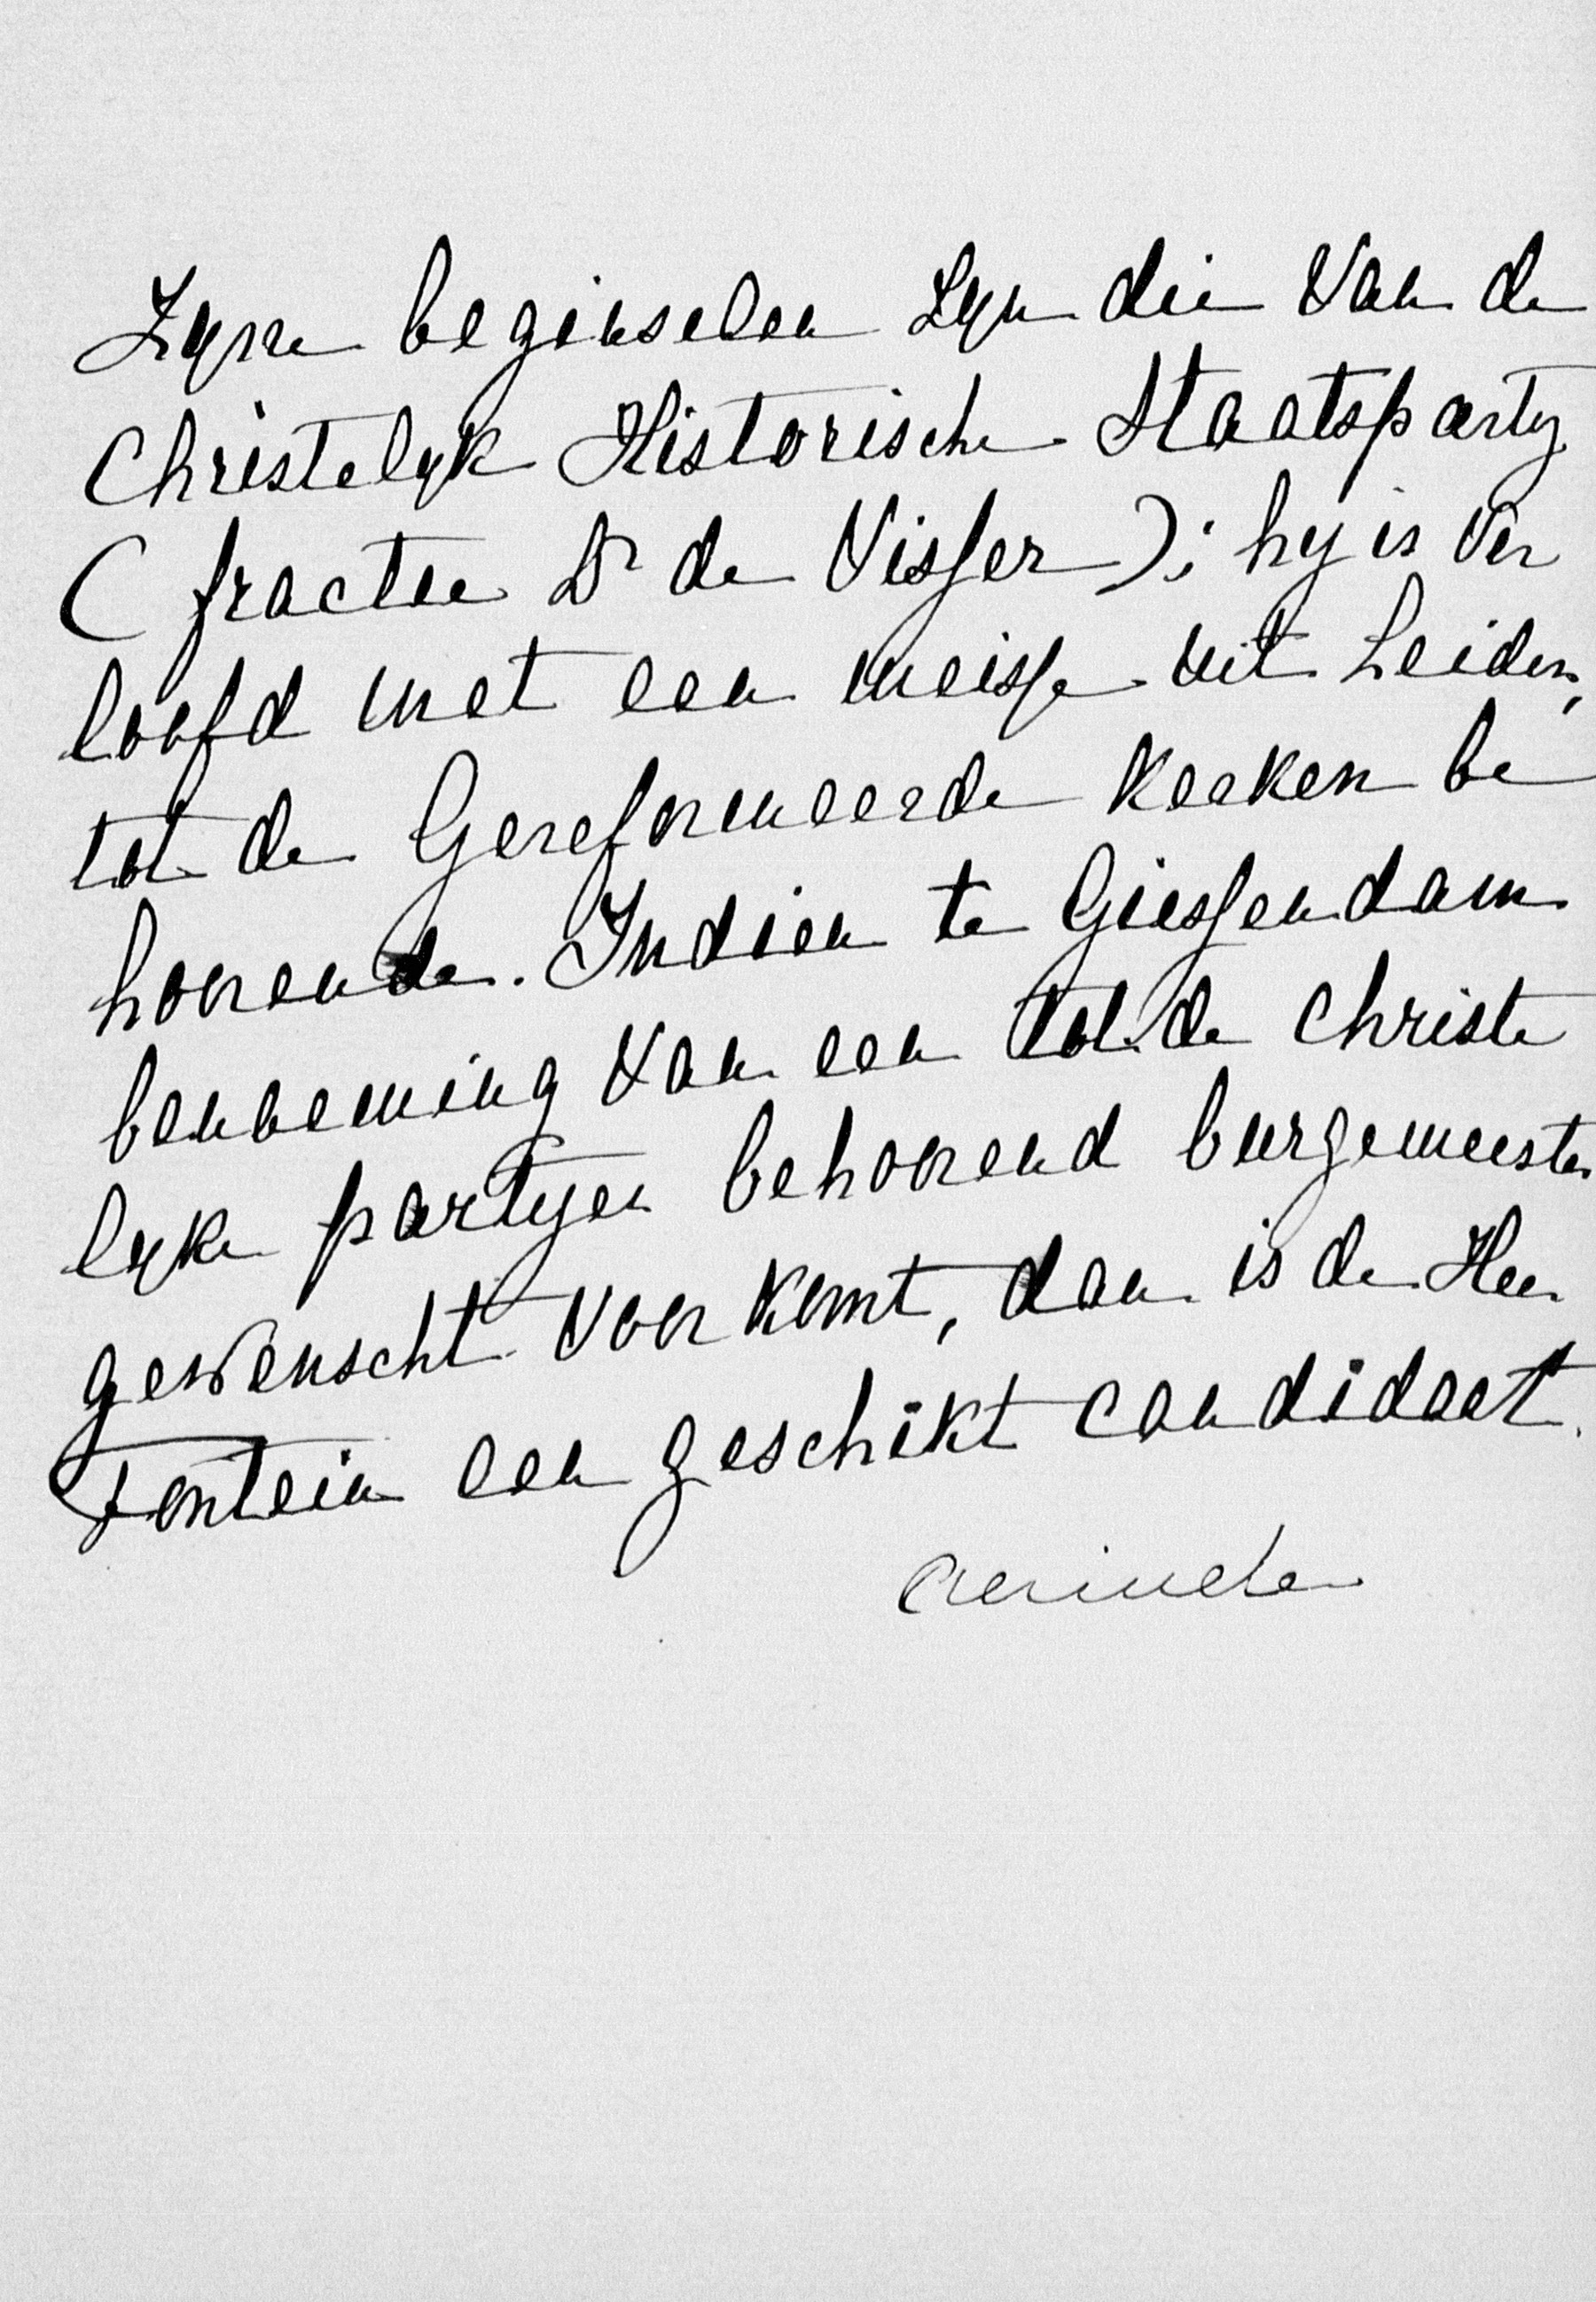 Zyne beginselen zyn die van de
Christelyk Historische Staatsparty
(fractie Dr de Visser); hy is ver
loofd met een meisje uit Leiden,
tot de Gereformeerde Kerken be
hoorende. Indien te Giessendam
benoeming van een tot de Christe
lyke partyen behoorend burgemeester
gewenscht voorkomt, dan is de Heer
Fontein een geschikt candidaat.